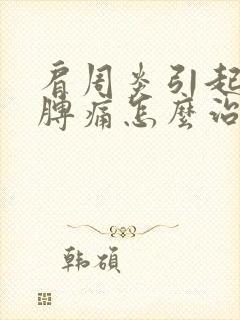 肩周炎引起
脾痛怎麼治
韩硕